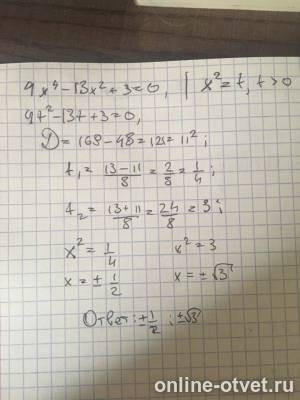 4x⁴-13x²+3=0, | x²=t, t>0
4t²-13t+3=0,
D=169-48=121=11²;
t₁=(13-11)/8=2/8=1/4;
t₂=(13+11)/8=24/8=3;
x²=1/4 x²=3
x=±1/2 x=±√3
Ответ: ±1/2; ±√3
online-otvet.ru